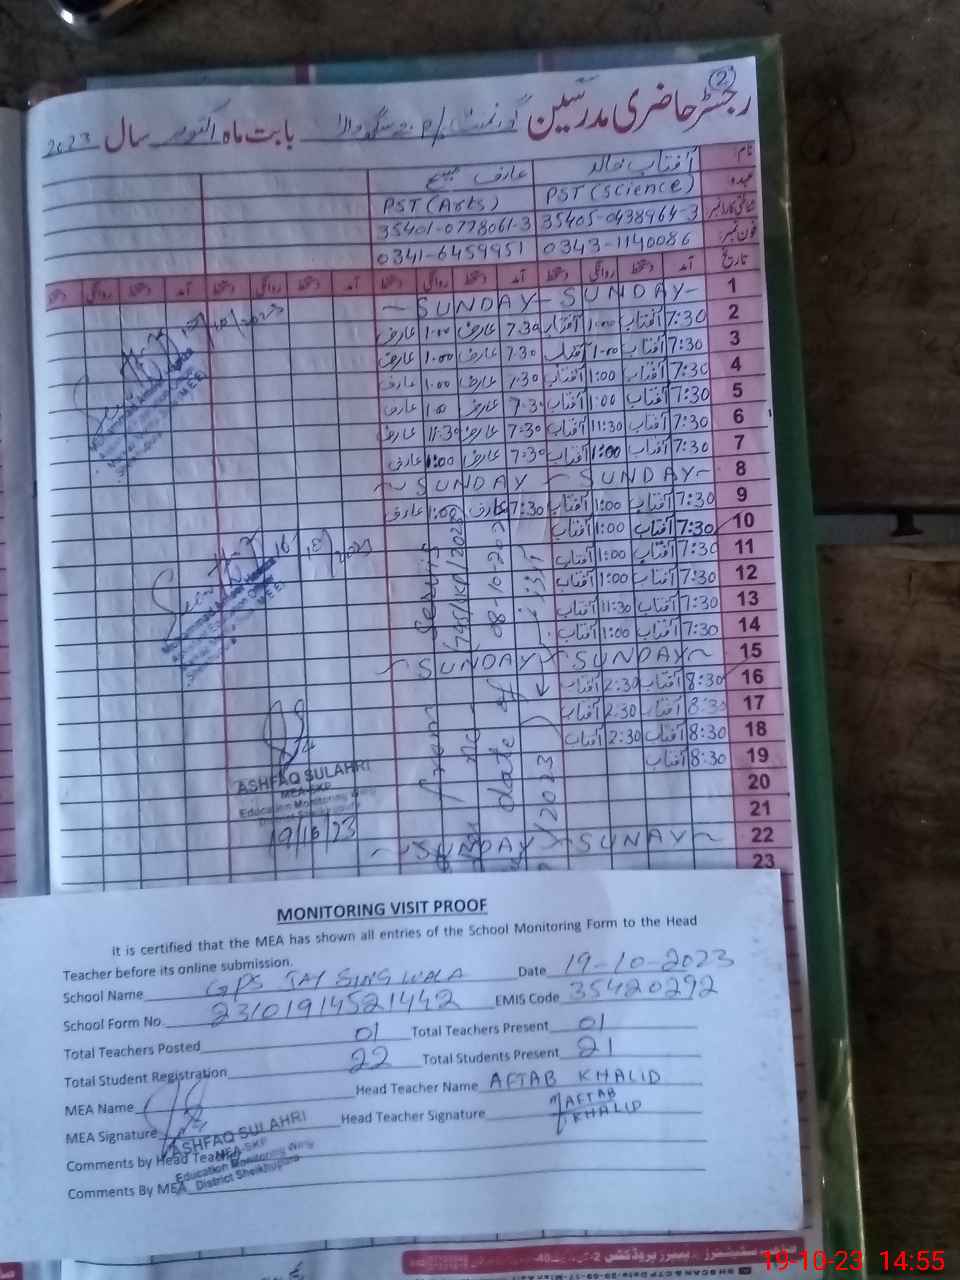 2
رجسٹر حاضری مدرسین گورنمنٹ P/ بابت ماہ اکتوبر سال 2023
نام: آفتاب خالد عارف مسیح
عہدہ PST (Science) PST (Arts)
شناختی کارڈ نمبر 35405-0438964-3 35401-0778061-3
فون نمبر: 0343-1140086 0341-6459951
تاریخ آمد دستخط روانگی دستخط آمد دستخط روانگی دستخط آمد دستخط روانگی دستخط آمد دستخط روانگی دستخط
1 ~SUNDAY~ ~SUNDAY~
2 7:30 آفتاب 1:00 آفتاب 7:30 عارف 1:00 عارف
3 7:30 آفتاب 1:00 آفتاب 7:30 عارف 1:00 عارف
4 7:30 آفتاب 1:00 آفتاب 7:30 عارف 1:00 عارف
5 7:30 آفتاب 1:00 آفتاب 7:30 عارف 1:00 عارف
6 7:30 آفتاب 11:30 آفتاب 7:30 عارف 11:30 عارف
7 7:30 آفتاب 1:00 آفتاب 7:30 عارف 1:00 عارف
8 ~SUNDAY~ ~SUNDAY~
9 7:30 آفتاب 1:00 آفتاب 7:30 عارف 1:00 عارف
10 7:30 آفتاب 1:00 آفتاب
11 7:30 آفتاب 1:00 آفتاب
12 7:30 آفتاب 1:00 آفتاب
13 7:30 آفتاب 11:30 آفتاب
14 7:30 آفتاب 1:00 آفتاب
15 ~SUNDAY~ ~SUNDAY~
16 8:30 آفتاب 2:30 آفتاب
17 8:30 آفتاب 2:30 آفتاب
18 8:30 آفتاب 2:30 آفتاب
19 8:30 آفتاب
20
21
22 ~SUNAY~ ~SUNDAY~
23
from Servis
date of
16/10/2023
ASHFAQ SULAHRI
MEA-SKP
Education Monitoring Wing
District Sheikhupura
19/10/23
MONITORING VISIT PROOF
it is certified that the MEA has shown all entries of the School Monitoring Form to the Head
Teacher before its online submission.
School Name GPS JAY SING WALA Date 19-10-2023
School Form No. 23101914521442 EMIS Code 35420292
Total Teachers Posted 01 Total Teachers Present 01
Total Student Registration 22 Total Students Present 21
MEA Name Head Teacher Name AFTAB KHALID
MEA Signature Head Teacher Signature AFTAB KHALID
ASHFAQ SULAHRI
MEA-SKP
Education Monitoring Wing
District Sheikhupura
Comments by Head Teacher
Comments By MEA
19-10-23 14:55